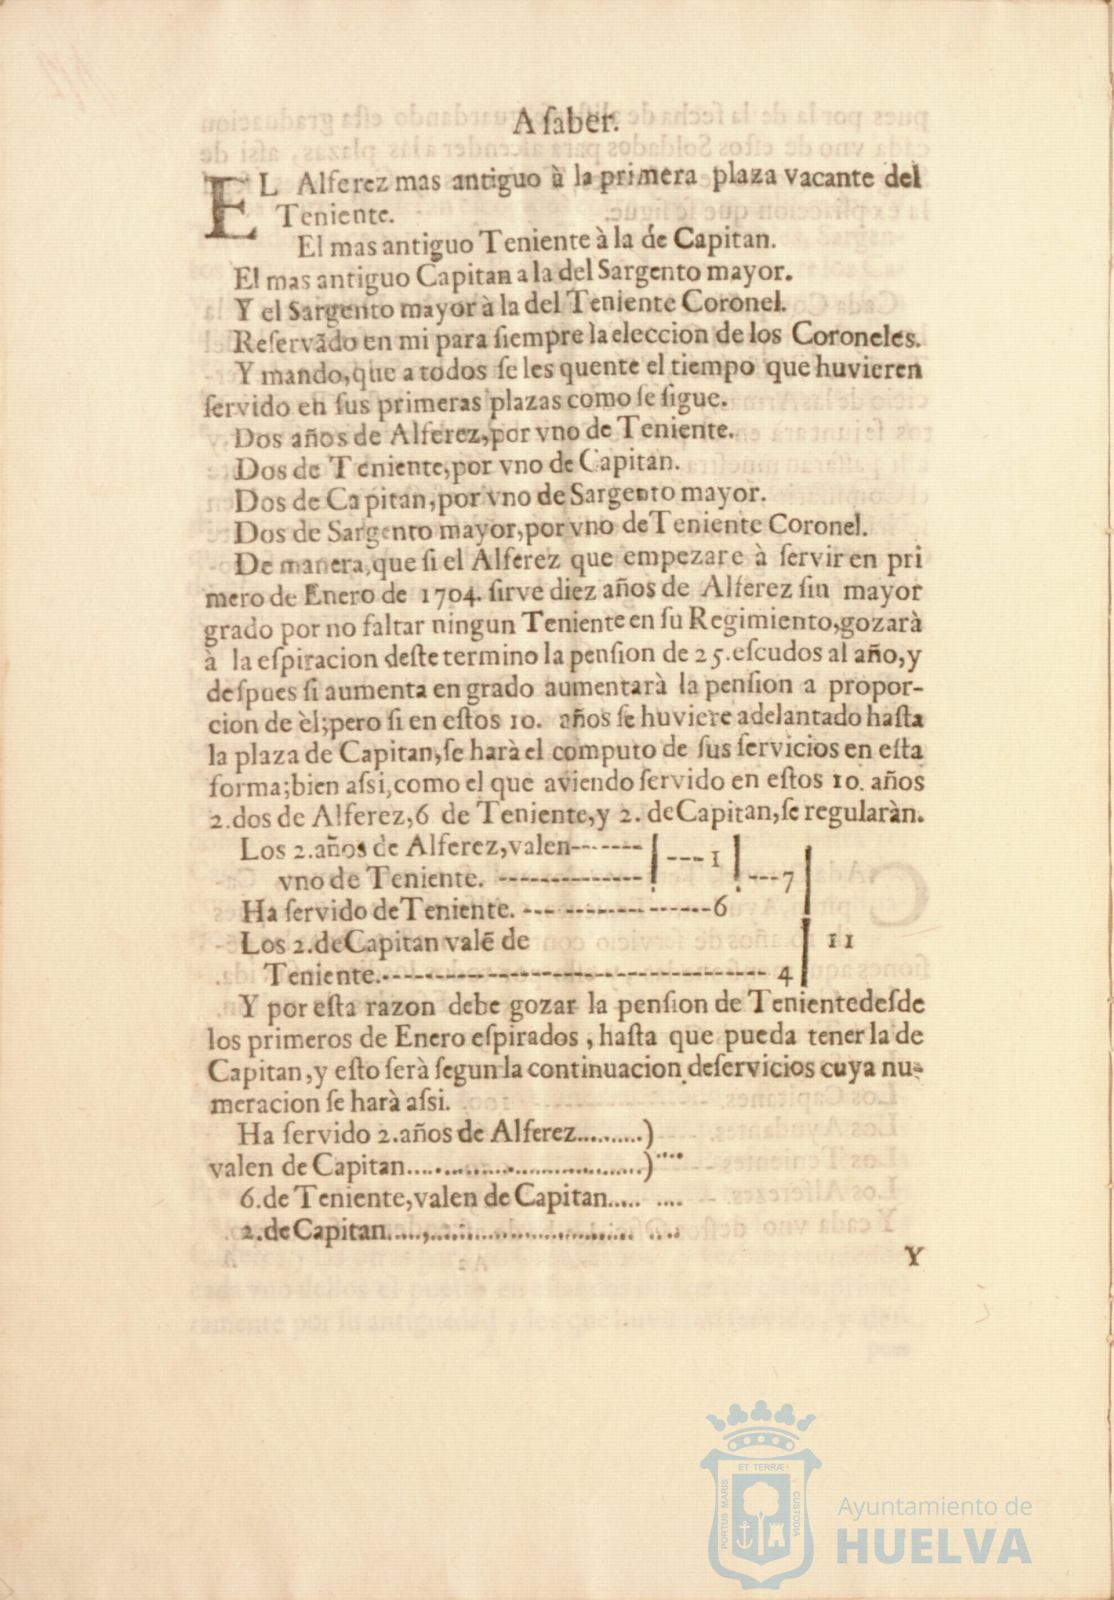 A ſaber.
EL Alferez mas antiguo à la primera plaza vacante del
Teniente.
El mas antiguo Teniente à la de Capitan.
El mas antiguo Capitan a la del Sargento mayor.
Y el Sargento mayor à la del Teniente Coronel.
Reſervãdo en mi para ſiempre la eleccion de los Coroneles.
Y mando, que a todos ſe les quente el tiempo que huvieren
ſervido en ſus primeras plazas como ſe ſigue.
Dos años de Alferez, por vno de Teniente.
Dos de Teniente, por vno de Capitan.
Dos de Capitan, por vno de Sargento mayor.
Dos de Sargento mayor, por vno de Teniente Coronel.
De manera, que ſi el Alferez que empezare à ſervir en pri
mero de Enero de 1704. ſirve diez años de Alferez ſin mayor
grado por no faltar ningun Teniente en ſu Regimiento, gozarà
à la eſpiracion deſte termino la penſion de 25. eſcudos al año, y
deſpues ſi aumenta en grado aumentarà la penſion a propor-
cion de èl; pero ſi en eſtos 10. años ſe huviere adelantado haſta
la plaza de Capitan, ſe harà el computo de ſus ſervicios en eſta
forma; bien aſsi, como el que aviendo ſervido en eſtos 10. años
2. dos de Alferez, 6 de Teniente, y 2. de Capitan, ſe regularàn.
Los 2. años de Alferez, valen------- | ---1 |
vno de Teniente. -------------- | ---7 |
Ha ſervido de Teniente. --- --------- ------6
Los 2. de Capitan valẽ de | 11
Teniente.------------------------------------- 4 |
Y por eſta razon debe gozar la penſion de Teniente deſde
los primeros de Enero eſpirados, haſta que pueda tener la de
Capitan, y eſto ſerà ſegun la continuacion de ſervicios cuya nu-
meracion ſe harà aſsi.
Ha ſervido 2. años de Alferez.........)
valen de Capitan.................................)....
6. de Teniente, valen de Capitan..... ....
2. de Capitan.................................. ....
Y
ET TERRÆ
PORTUS MARIS
CUSTODIA
Ayuntamiento de
HUELVA